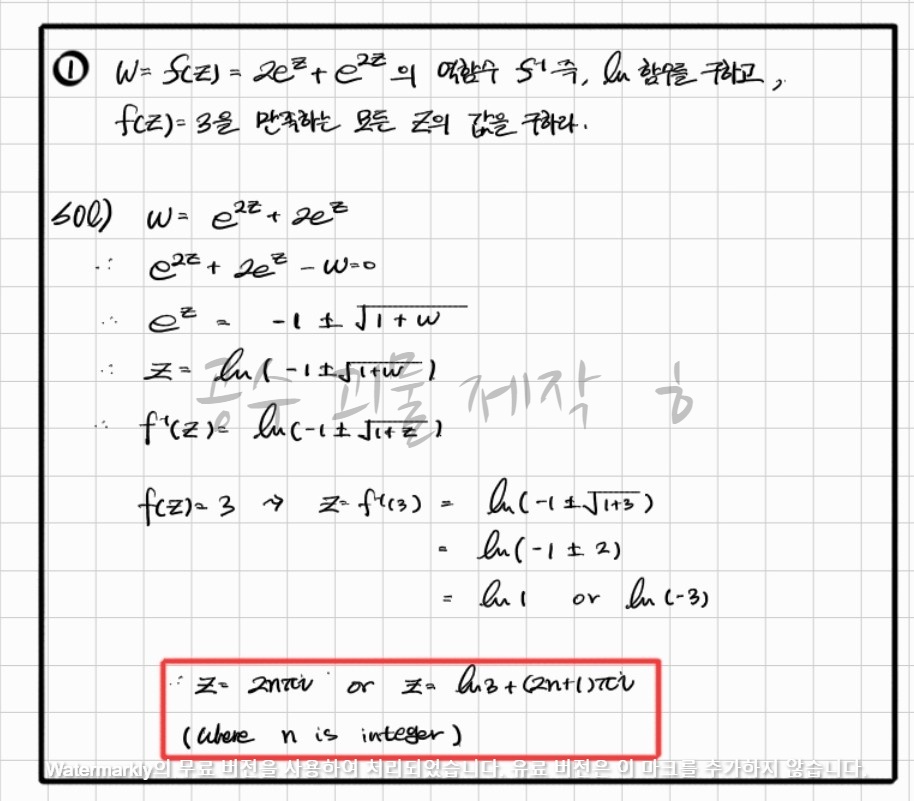 ① W= f(z) = 2e^z + e^{2z} 의 역함수 f⁻¹ 즉, ln 함수를 구하고,
f(z)= 3을 만족하는 모든 z의 값을 구하라.
sol) w= e^{2z} + 2e^z
∴ e^{2z} + 2e^z - w=0
∴ e^z = -1 ± √(1+w)
∴ z= ln(-1±√(1+w))
공수 괴물 제작 ㅎ
∴ f⁻¹(z)= ln(-1±√(1+z))
f(z)=3 → z=f⁻¹(3) = ln(-1±√(1+3))
= ln(-1±2)
= ln1 or ln(-3)
∴ z= 2nπi or z= ln3+(2n+1)πi
(where n is integer)
Watermarkly의 무료 버전을 사용하여 처리되었습니다. 유료 버전은 이 마크를 추가하지 않습니다.